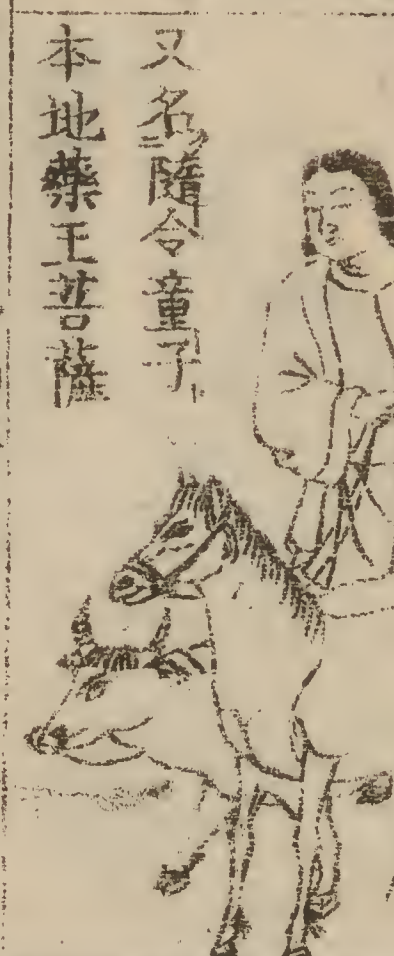 又名隨令童子
本地藥王菩薩